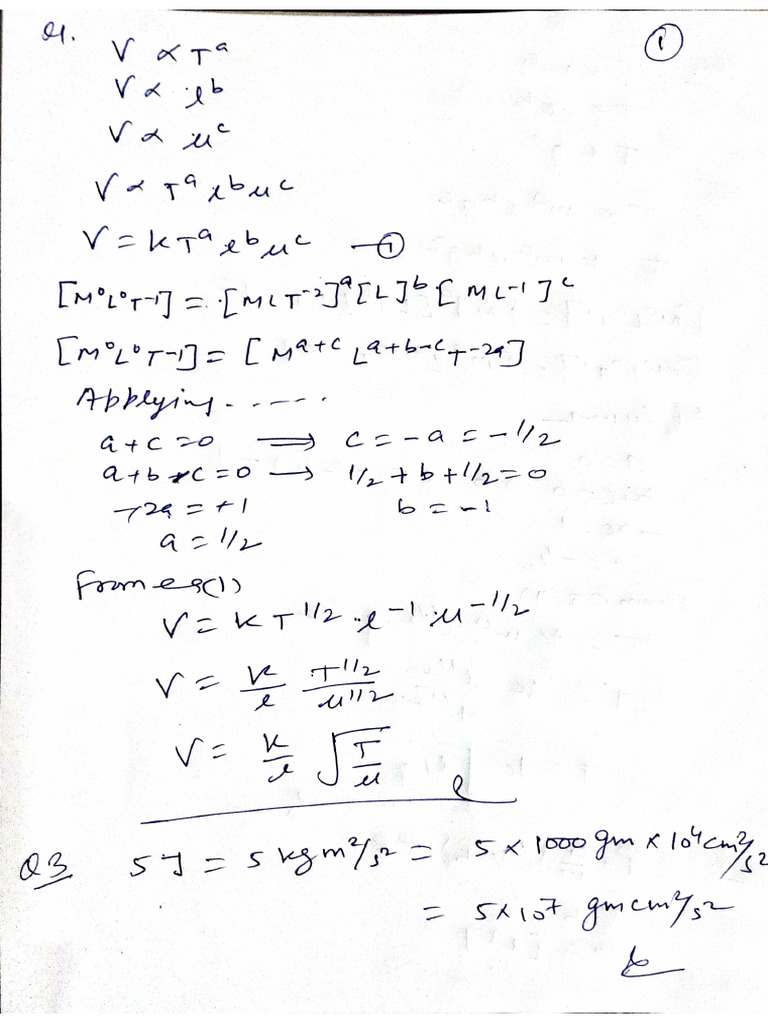 Q1.
①
V ∝ T^a
V ∝ l^b
V ∝ μ^c
V ∝ T^a l^b μ^c
V = K T^a l^b μ^c —①
[M⁰L⁰T⁻¹] = [MLT⁻²]^a [L]^b [ML⁻¹]^c
[M⁰L⁰T⁻¹] = [M^(a+c) L^(a+b-c) T^(-2a)]
Applying.....
a+c=0 ⟹ c = -a = -1/2
a+b-c=0 → 1/2+b+1/2=0
-2a = +1 b = -1
a = 1/2
From eq(1)
V = K T^(1/2) · l^(-1) · μ^(-1/2)
V = K/l T^(1/2)/μ^(1/2)
V = K/l √(T/μ)
Q3 5 J = 5 kg m²/s² = 5 × 1000 gm × 10⁴ cm²/s²
= 5×10⁷ gm cm²/s²